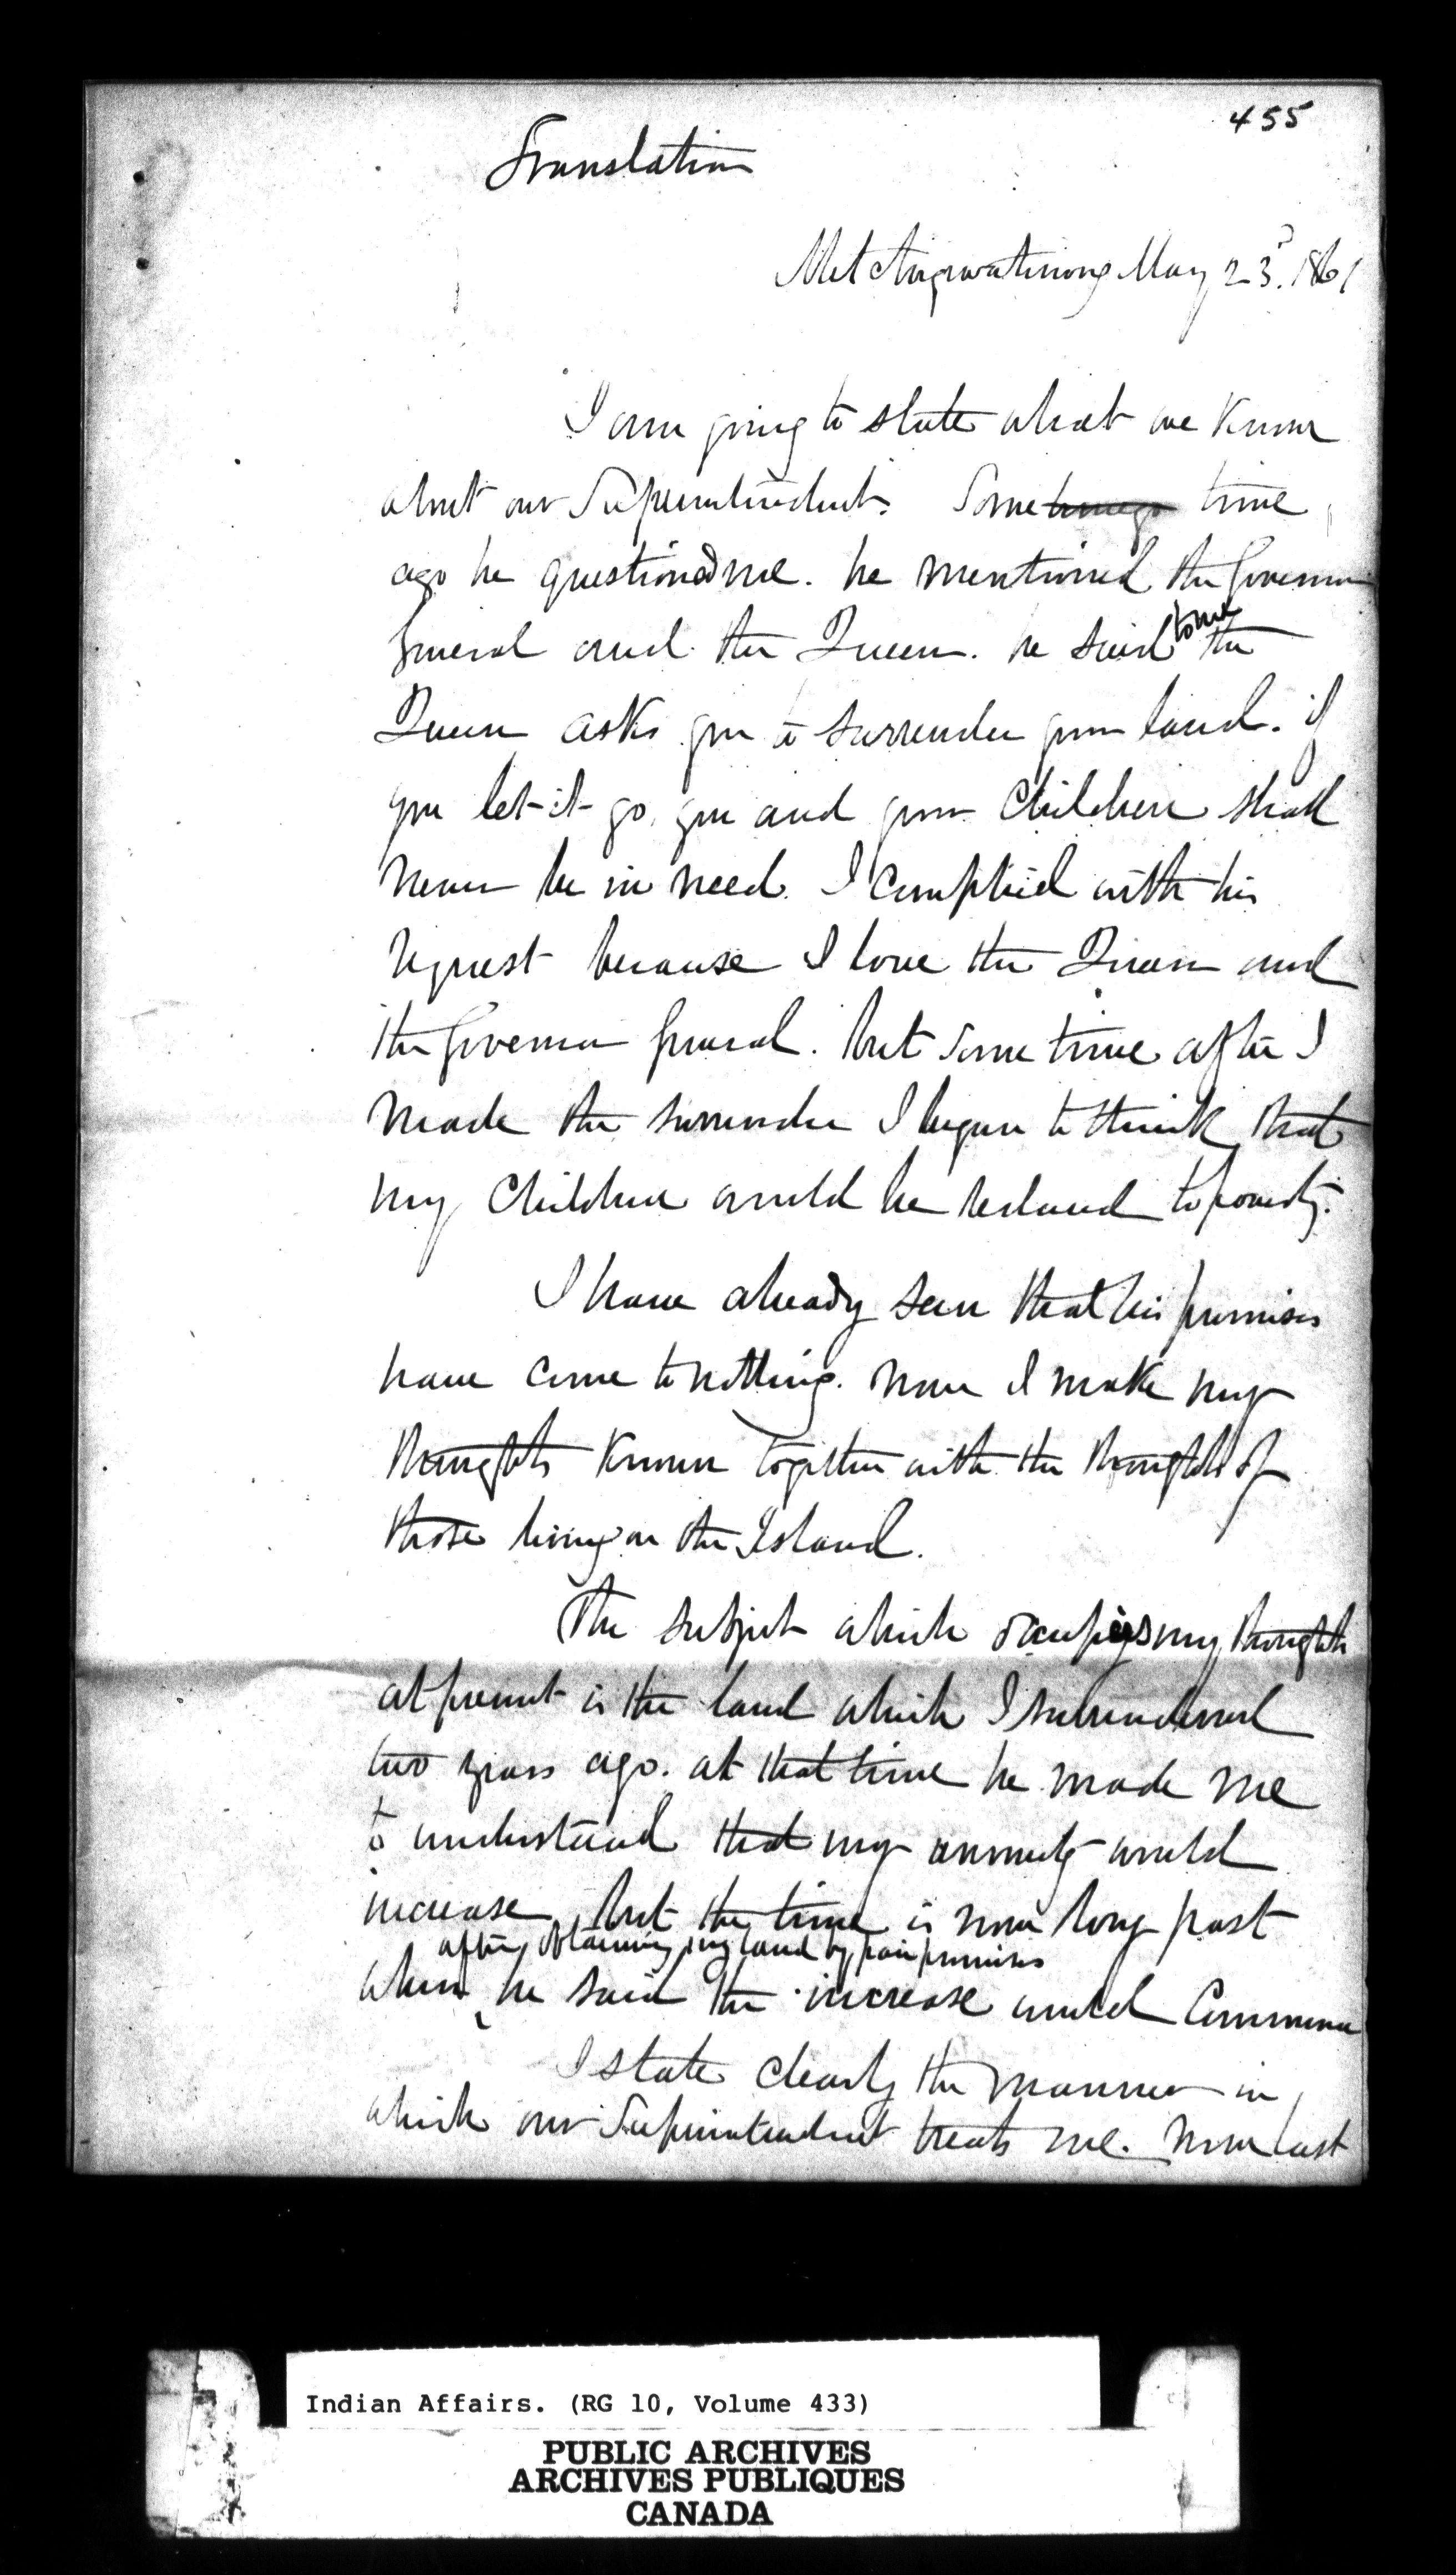 455
Translation
Metchigwatinong May 23d. 1861
I am going to state what we Know
about our Superintendent. Some timego time
ago he questioned me. he mentioned the Governor
General and the Queen. he said to me the
Queen asks you to surrender your land. if
you let it go, you and your Children shall
never be in need. I complied with his
request because I love the Queen and
the Governor General. but some time after I
made the surrender I began to think that
my Children would be reduced to poverty.
I have already seen that his promises
have come to nothing. now I make my
thoughts Known together with the thoughts of
those living on the Island.
The subject which occupies my thoughts
at present is the land which I surrendered
two years ago. at that time he made me
to understand that my annuity would
increase, but the time is now long past
after obtaining my land by fair promises
when he said the increase would Commence
I state clearly the manner in
which our Superintendent treats me. now last
Indian Affairs. (RG 10, Volume 433)
PUBLIC ARCHIVES
ARCHIVES PUBLIQUES
CANADA